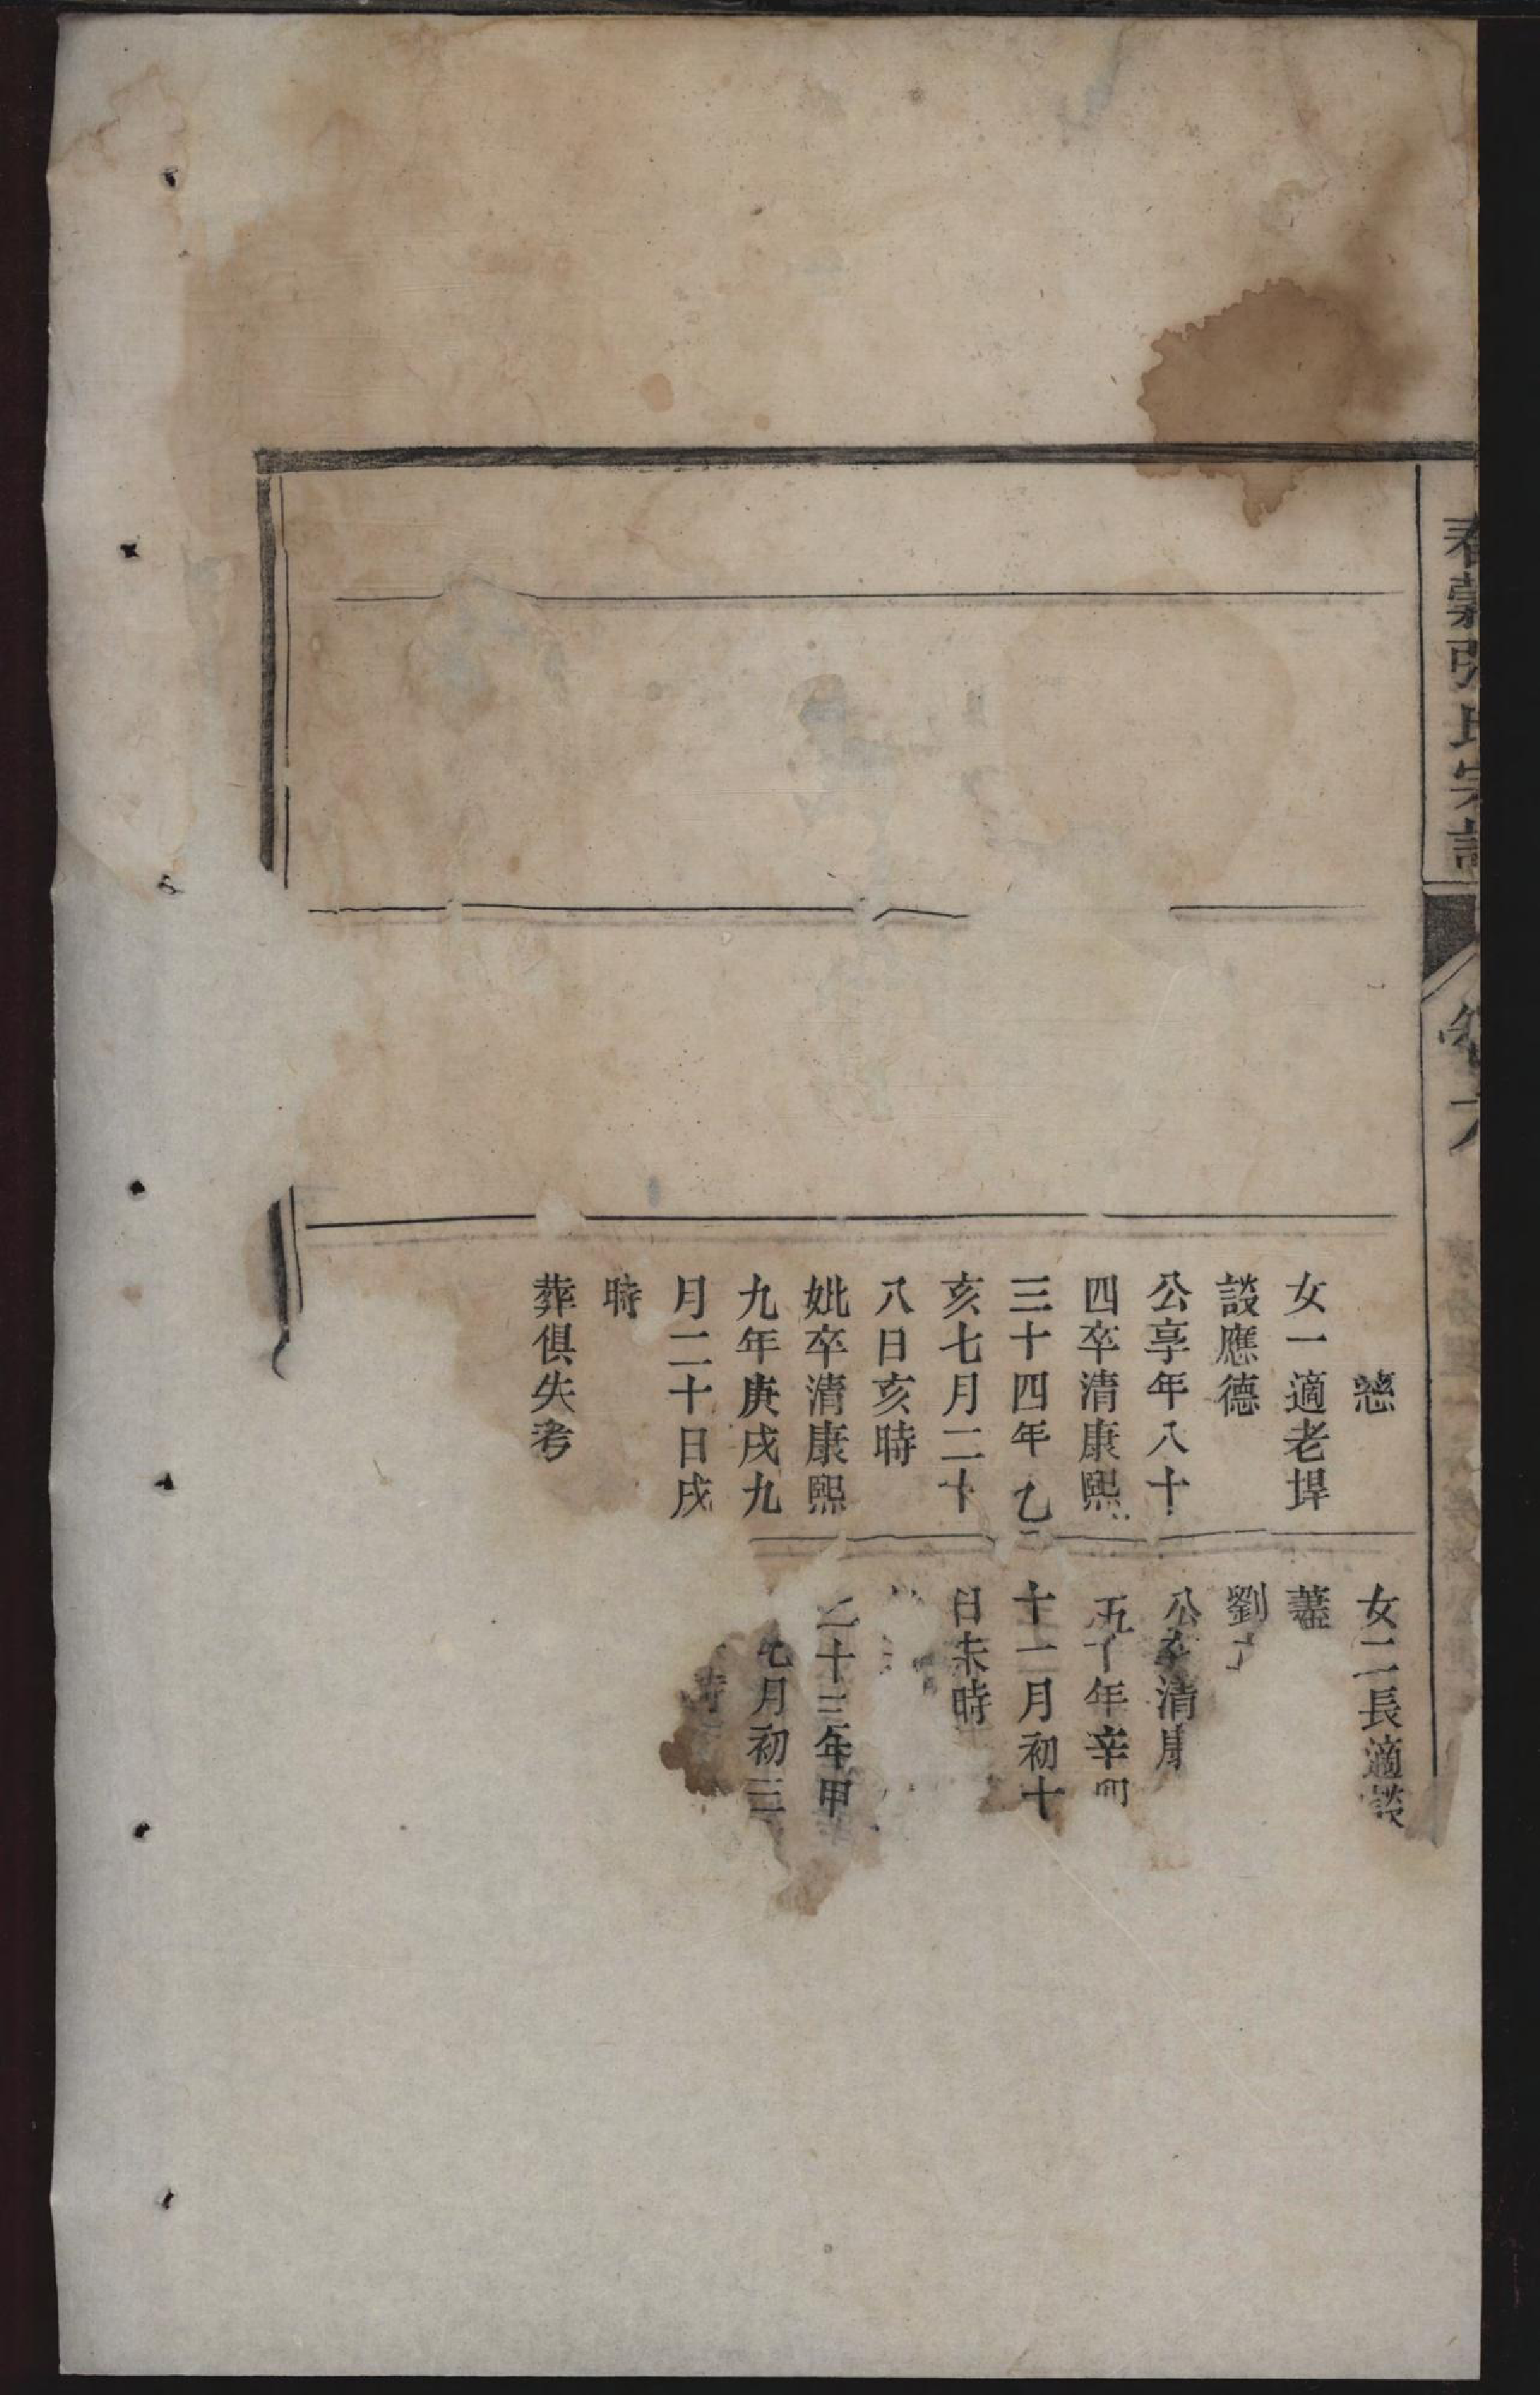 春穀張氏宗譜
卷六
戀
女一適老埠
談應德
公享年八十
四卒清康熙
三十四年乙
亥七月二十
八日亥時
妣卒清康熙
九年庚戌九
月二十日戌
時
葬俱失考
女二長適談
劉
公卒清康
五十年辛卯
十一月初十
日未時
二十三年甲
七月初三
時